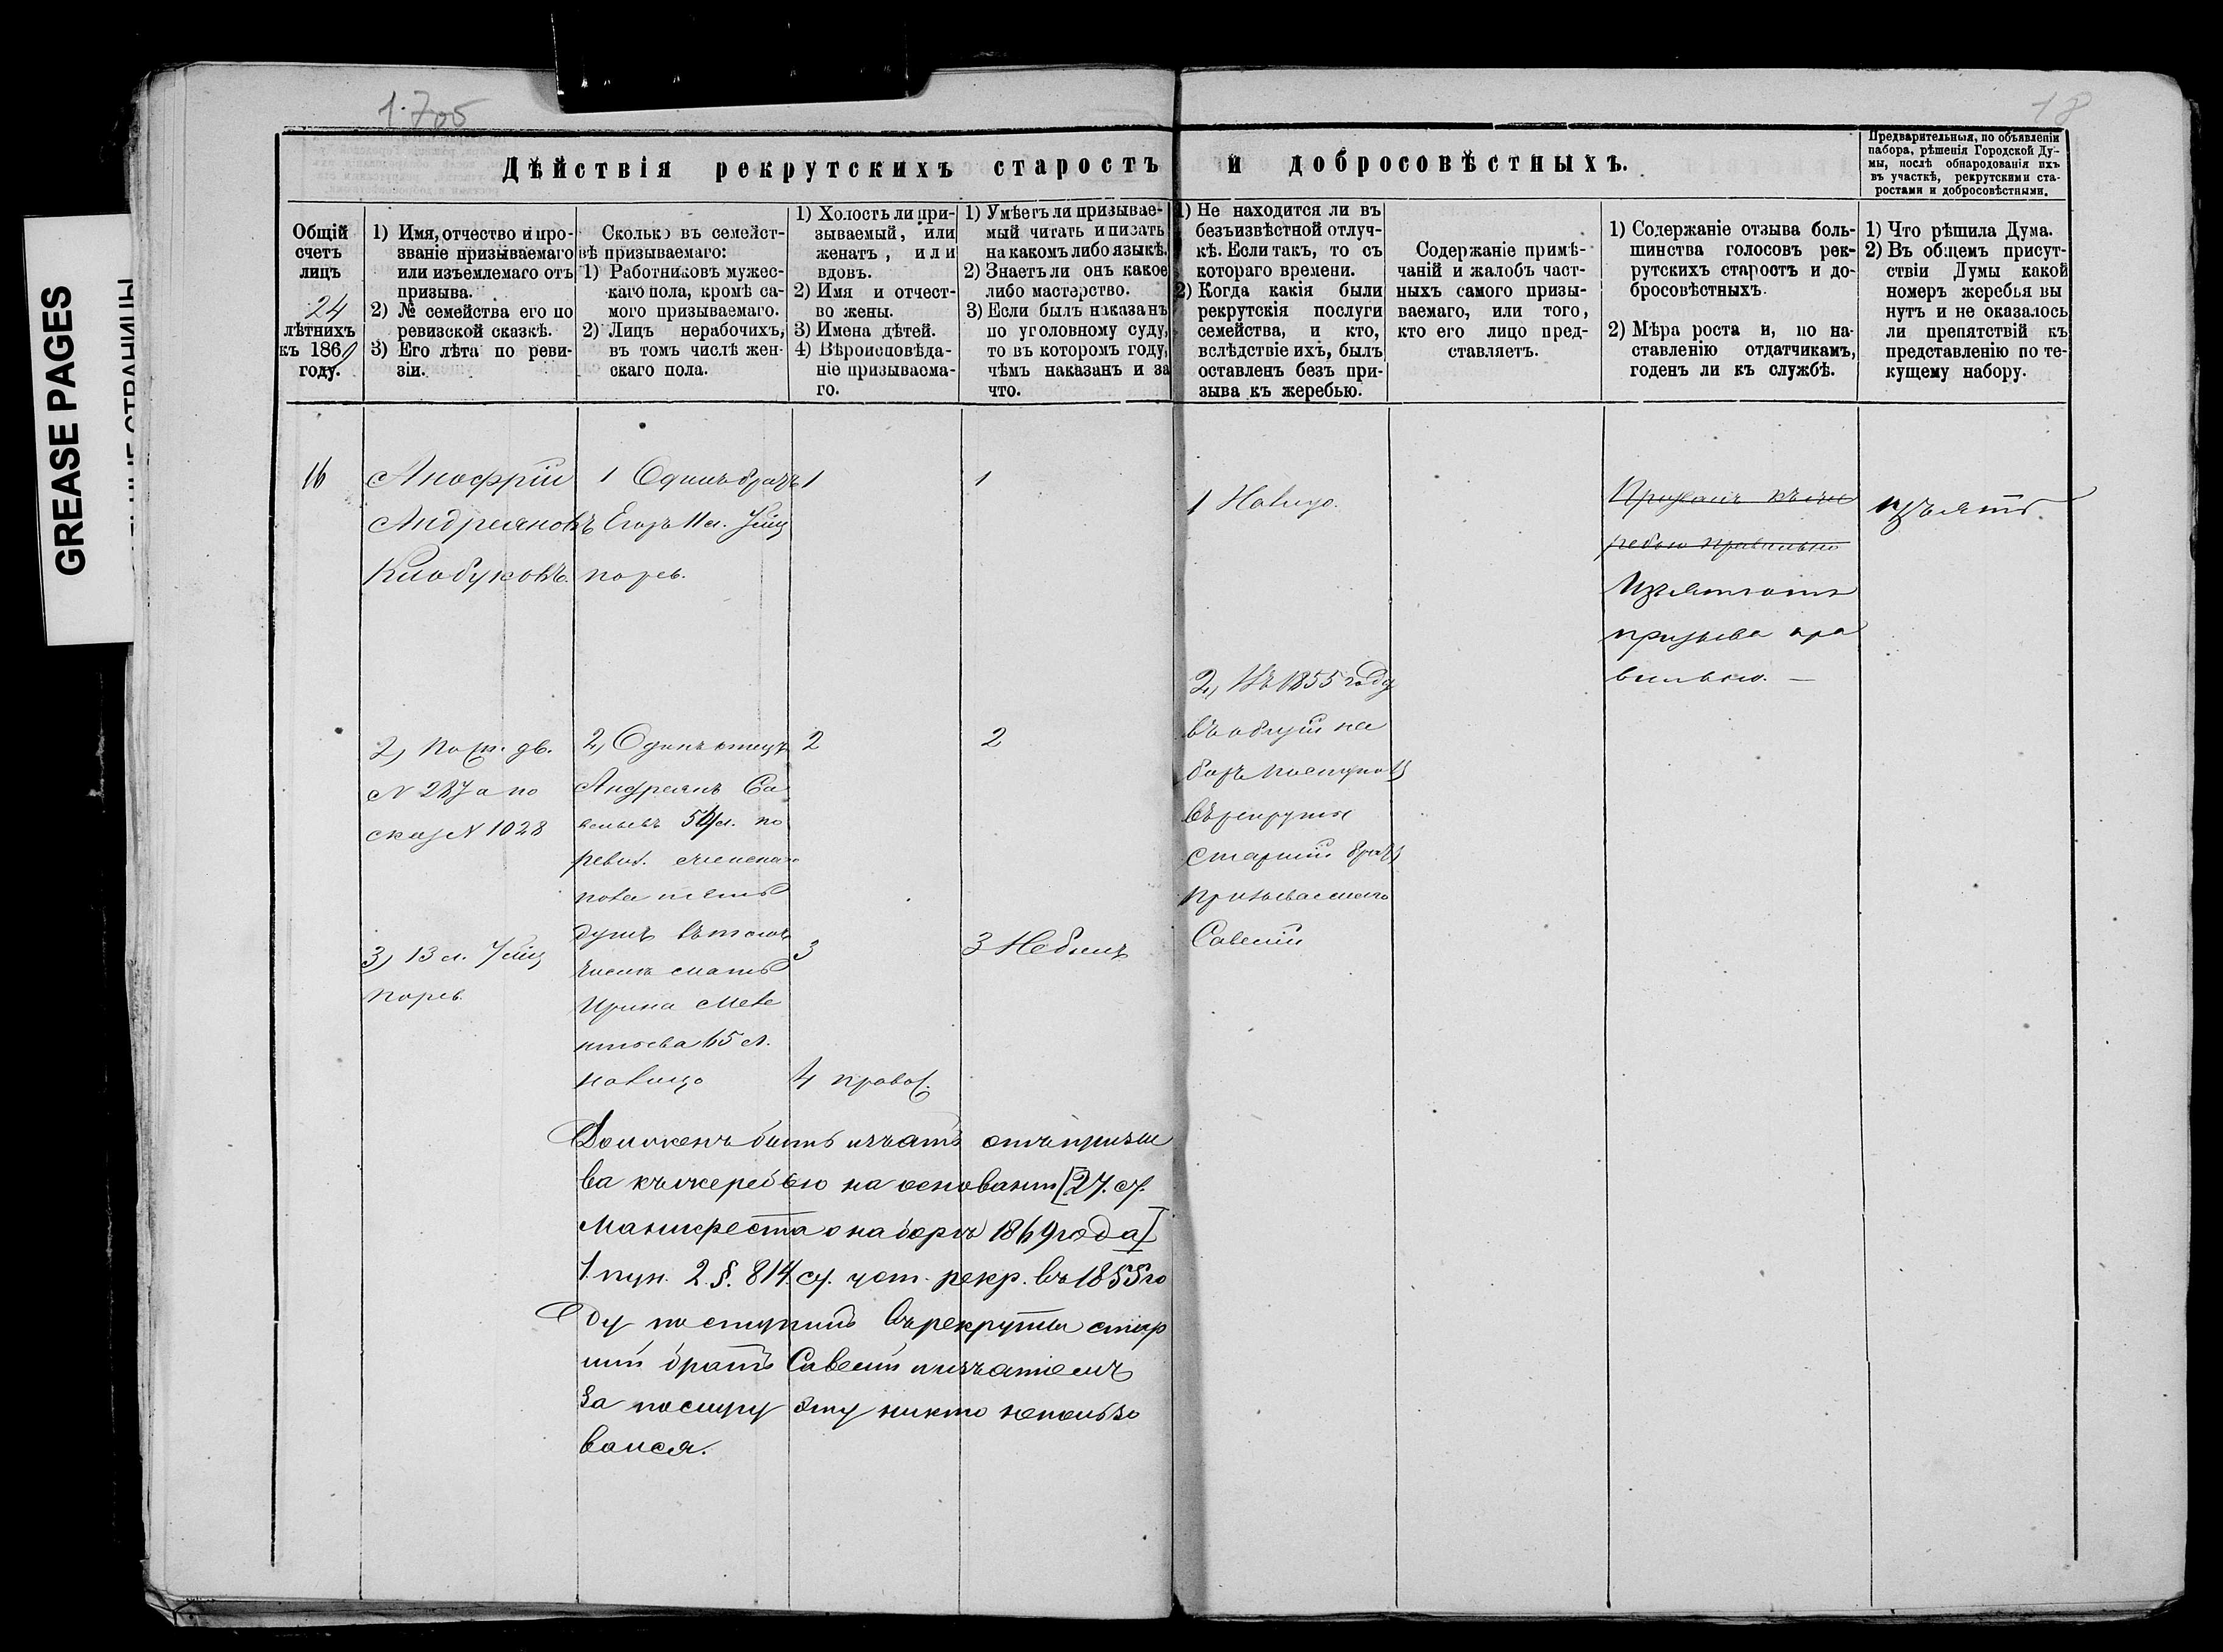 GREASE PAGES
1.705
18
Дѣйствія рекрутскихъ старостъ и добросовѣстныхъ.
Предварительныя, по объявленіи
набора, рѣшенія Городской Ду-
мы, послѣ обнародованія ихъ
въ участкѣ, рекрутскими ста-
ростами и добросовѣстными.
Общій
счетъ
лицъ
24
лѣтнихъ
къ 186
году.
1) Имя, отчество и про-
званіе призываемаго
или изъемлемаго отъ
призыва.
2) № семейства его по
ревизской сказкѣ.
3) Его лѣта по реви-
зіи.
Сколько въ семейст-
вѣ призываемаго:
1) Работниковъ мужес-
каго пола, кромѣ са-
мого призываемаго.
2) Лицъ нерабочихъ,
въ томъ числѣ жен-
скаго пола.
1) Холостъ ли при-
зываемый, или
женатъ, или
вдовъ.
2) Имя и отчест-
во жены.
3) Имена дѣтей.
4) Вѣроисповѣда-
ніе призываема-
го.
1) Умѣетъ ли призывае-
мый читать и писать
на какомъ либо языкѣ.
2) Знаетъ ли онъ какое
либо мастерство.
3) Если былъ наказанъ
по уголовному суду,
то въ которомъ году,
чѣмъ наказанъ и за
что.
1) Не находится ли въ
безъизвѣстной отлуч-
кѣ. Если такъ, то съ
котораго времени.
2) Когда какія были
рекрутскія послуги
семейства, и кто,
вслѣдствіе ихъ, былъ
оставленъ безъ при-
зыва къ жеребью.
Содержаніе примѣ-
чаній и жалобъ част-
ныхъ самого призы-
ваемаго, или того,
кто его лицо пред-
ставляетъ.
1) Содержаніе отзыва боль-
шинства голосовъ рек-
рутскихъ старостъ и до-
бросовѣстныхъ.
2) Мѣра роста и, по на-
ставленію отдатчикамъ,
годенъ ли къ службѣ.
1) Что рѣшила Дума.
2) Въ общемъ присут-
ствіи Думы какой
номеръ жеребья вы
нутъ и не оказалось
ли препятствій къ
представленію по те-
кущему набору.
16
Анофрій
Андреяновъ
Клобуковъ.
2)
N 287 а по
сказ N 1028
3) 13 л.
по рев.
1 Одинъ братъ
Егоръ 11 л.
по рев.
2) Одинъ отецъ
Андреянъ Са
вельевъ л. по
ревиз. женска
пола
душъ въ томъ
числѣ мать
Ирина
65 л.
налицо
1
2
3
4 правос.
1
2
3 Не былъ
1 Налицо.
2) Въ 1855 году
въ общій на
боръ поступилъ
въ рекруты
старшій братъ
призываемаго
Савелій
Призванъ къ же
ребью правильно
Изъятъ отъ
призыва пра
вильно. —
изъять
Долженъ быть изъятъ отъ призы
ва къ жеребью на основаніи [27. ст.
Манифеста о наборѣ 1869 года]
1. пун. 2 §. 814. ст. уст. рекр. въ 1855 го
ду поступилъ въ рекруты стар
шій братъ Савелій и изъятіемъ
за послугу эту никто не пользо
вался.